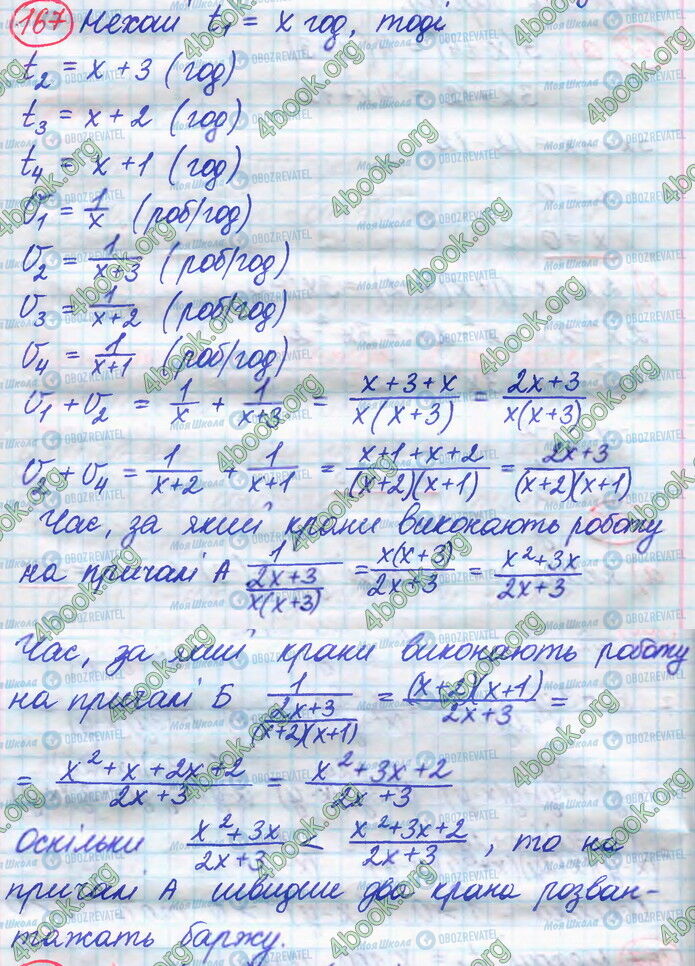 167 Нехай t₁ = x год, тоді
t₂ = x + 3 (год)
t₃ = x + 2 (год)
t₄ = x + 1 (год)
υ₁ = 1/x (роб/год)
υ₂ = 1/(x+3) (роб/год)
υ₃ = 1/(x+2) (роб/год)
υ₄ = 1/(x+1) (роб/год)
υ₁ + υ₂ = 1/x + 1/(x+3) = (x+3+x)/(x(x+3)) = (2x+3)/(x(x+3))
υ₃ + υ₄ = 1/(x+2) + 1/(x+1) = (x+1+x+2)/((x+2)(x+1)) = (2x+3)/((x+2)(x+1))
Час, за який крани виконають роботу
на причалі А 1/((2x+3)/(x(x+3))) = (x(x+3))/(2x+3) = (x²+3x)/(2x+3)
Час, за який крани виконають роботу
на причалі Б 1/((2x+3)/((x+2)(x+1))) = ((x+2)(x+1))/(2x+3) =
= (x²+x+2x+2)/(2x+3) = (x²+3x+2)/(2x+3)
Оскільки (x²+3x)/(2x+3) < (x²+3x+2)/(2x+3), то на
причалі А швидше два крана розван-
тажать баржу.
4book.org
МояШкола OBOZREVATEL